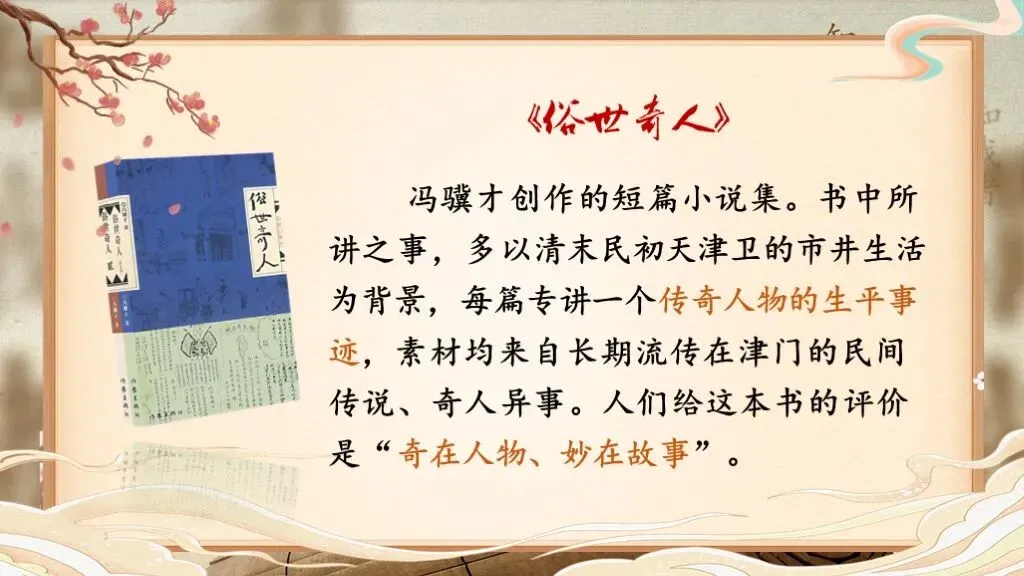 《俗世奇人》
冯骥才创作的短篇小说集。书中所
讲之事，多以清末民初天津卫的市井生活
为背景，每篇专讲一个传奇人物的生平事
迹，素材均来自长期流传在津门的民间
传说、奇人异事。人们给这本书的评价
是“奇在人物、妙在故事”。
俗世奇人
俗世奇人
作家出版社